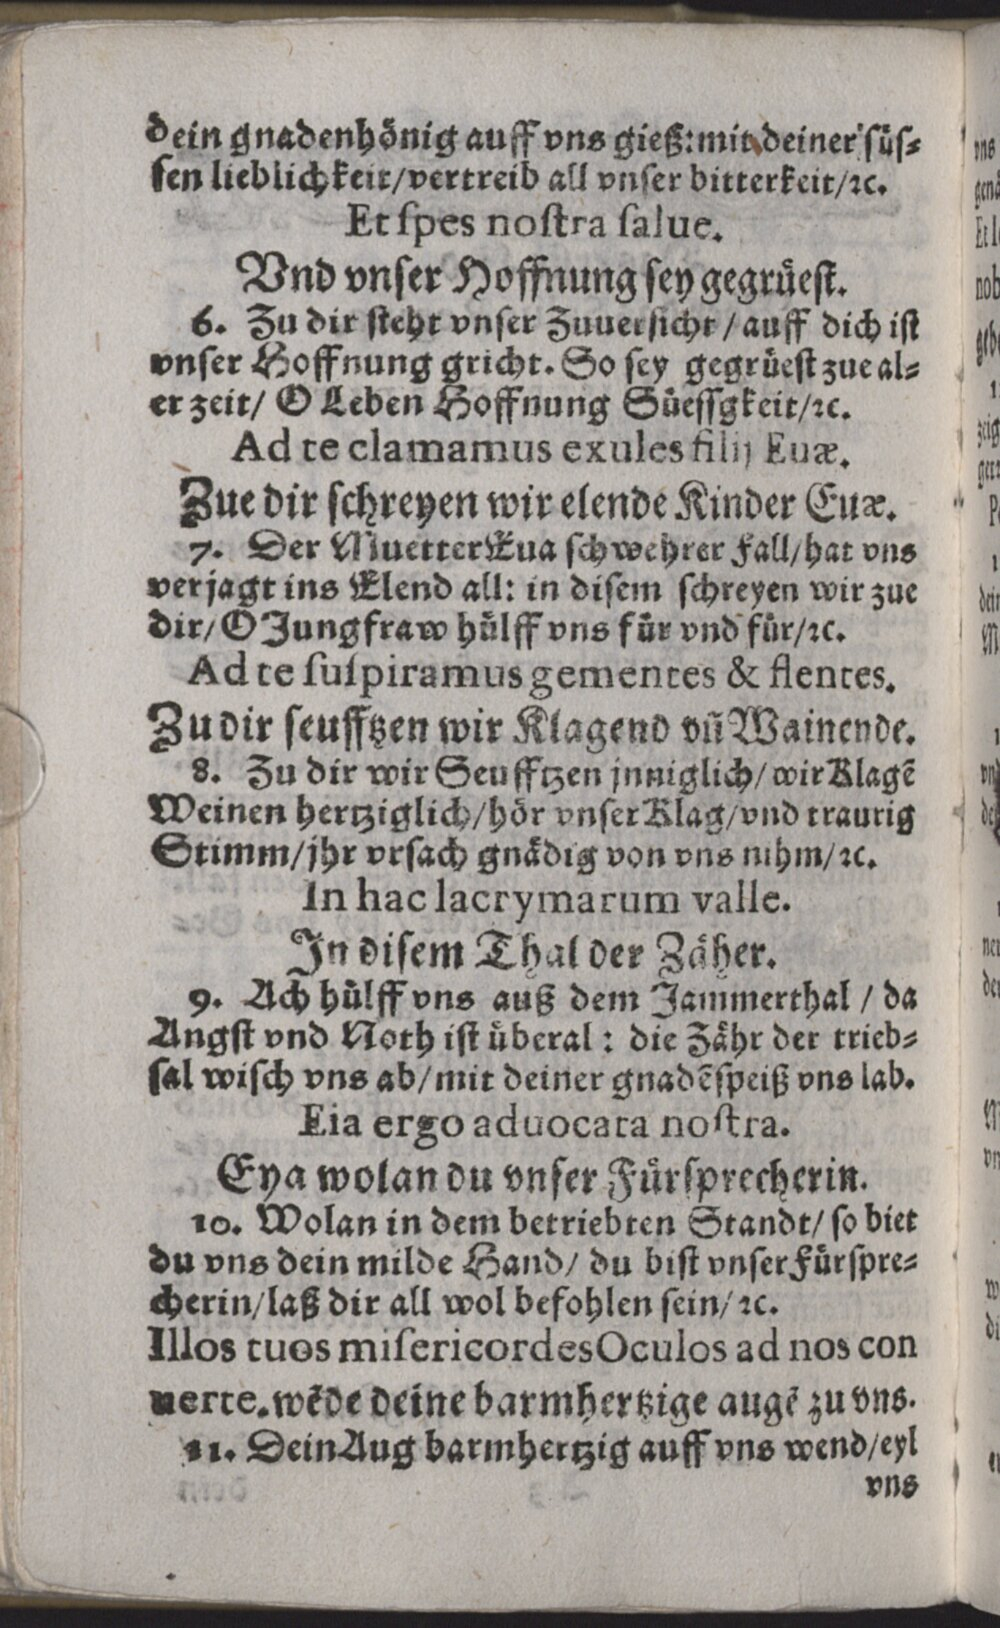 dein gnadenhönig auff vns gieß: mit deiner süs-
sen lieblichkeit/vertreib all vnser bitterkeit/ꝛc.
Et ſpes noſtra ſalue.
Vnd vnser Hoffnung sey gegrüest.
6. Zu dir steht vnser Zuuersicht / auff dich ist
vnser Hoffnung gricht. So sey gegrüest zue al-
er zeit/ O Leben Hoffnung Süessgkeit/ꝛc.
Ad te clamamus exules filij Euæ.
Zue dir schreyen wir elende Kinder Euæ.
7. Der Muetter Eua schwehrer Fall/hat vns
verjagt ins Elend all: in disem schreyen wir zue
dir/O Jungfraw hülff vns für vnd für/ꝛc.
Ad te ſuſpiramus gementes & flentes.
Zu dir seufftzen wir Klagend vñ Wainende.
8. Zu dir wir Seufftzen jnniglich/wir Klagē
Weinen hertziglich/hör vnser Klag/vnd traurig
Stimm/jhr vrsach gnädig von vns nihm/ꝛc.
In hac lacrymarum valle.
In disem Thal der Zäher.
9. Ach hülff vns auß dem Jammerthal / da
Angst vnd Noth ist überal : die Zähr der trieb-
sal wisch vns ab/mit deiner gnadēspeiß vns lab.
Eia ergo aduocata noſtra.
Eya wolan du vnser Fürsprecherin.
10. Wolan in dem betriebten Standt/ so biet
du vns dein milde Hand/ du bist vnser Fürspre-
cherin/laß dir all wol befohlen sein/ꝛc.
Illos tuos miſericordes Oculos ad nos con
uerte. wēde deine barmhertzige augē zu vns.
11. Dein Aug barmhertzig auff vns wend/eyl
vns